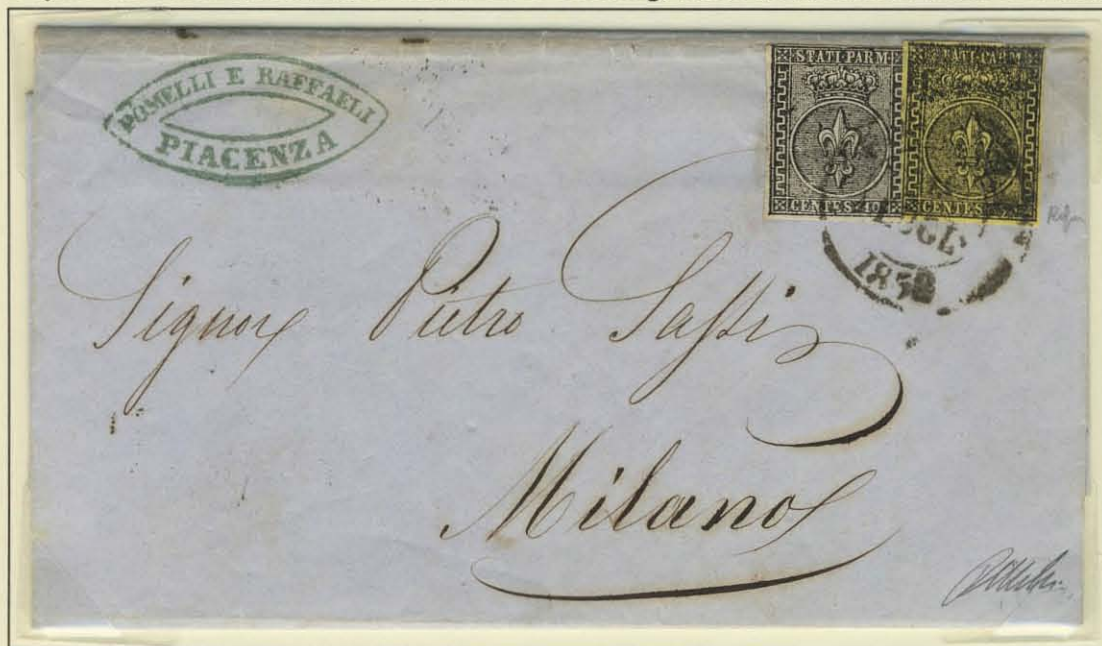 POMELLI E RAFFAELI
PIACENZA
STATI PARM
CENTES. 10
STATI PARM
CENTES.
LUGL.
1852
Signor Pietro Sassi
Milano